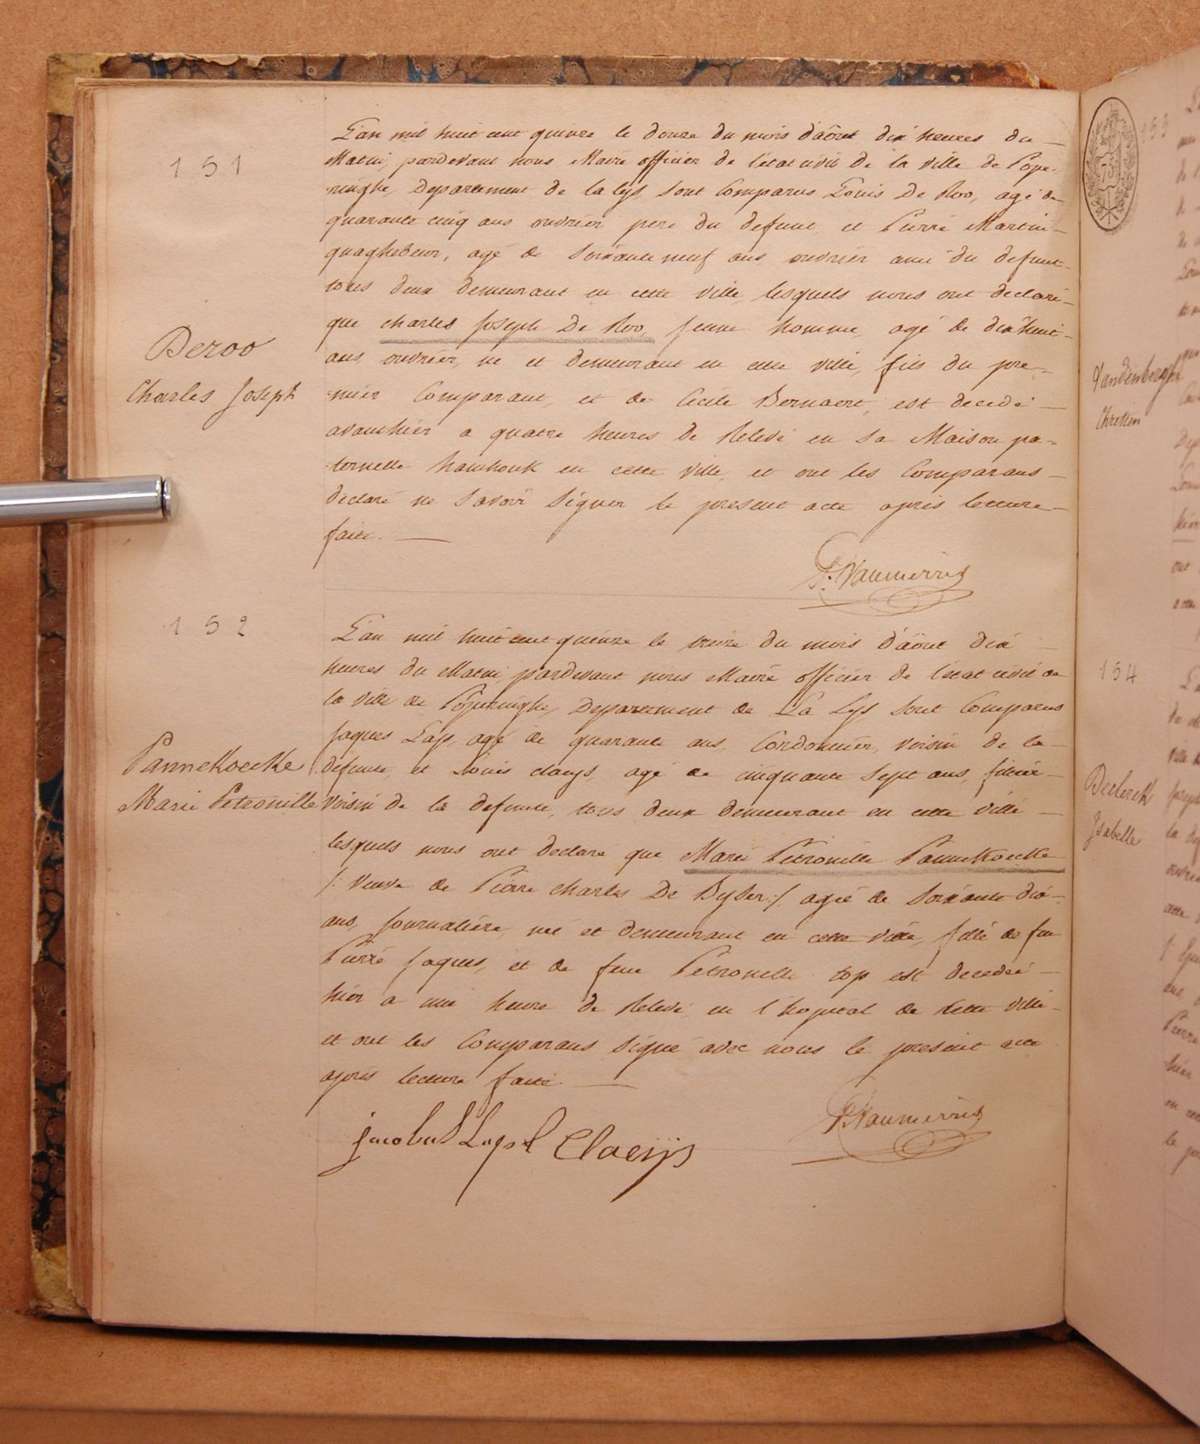 151
L'an mil huit cent quinze le douze du mois d'août dix heures du
Matin, pardevant nous Maire officier de l'état civil de la ville de Pope-
ringhe, Departement de la Lys, sont Comparus Louis De Roo, agé de
quarante cinq ans ouvrier pere du defunt, et Pierre Martin
quaghebeur, agé de Soixante neuf ans ouvrier ami du defunt
tous deux demeurant en cette ville, lesquels nous ont declaré
que charles Joseph De Roo, jeune homme, agé de dix huit
ans, ouvrier, né et demeurant en cette ville, fils du pre-
mier Comparant, et de Cécile Bernaert, est decedé
avanthier a quatre heures de Relevé en sa Maison pa-
ternelle en cette ville, et ont les Comparans
declaré ne savoir signer le present acte après lecture
faite.
Deroo
Charles Joseph
P. Vanmerris
152
L'an mil huit cent quinze le treize du mois d'août dix
heures du Matin, pardevant nous Maire officier de l'état civil de
la ville de Poperinghe, Departement de La Lys sont Comparus
Jaques Laps, agé de quarante ans, Cordonnier, voisin de la
defunte et Louis claeys, agé de cinquante sept ans,
voisin de la defunte, tous deux demeurant en cette ville
lesquels nous ont declaré que Marie Petronille Pannekoecke
/: veuve de Pierre charles De Byser :/ agée de soixante dix
ans, journaliere, née et demeurant en cette ville, fille de feu
Pierre Jaques, et de feue Petronelle top est decedée
hier a une heure de Relevé en l'hopital de cette ville
et ont les Comparans signé avec nous le present acte
après lecture faite.
Pannekoecke
Marie Petronille
jacobus Laps L Claeijs
P. Vanmerris
153
Vandenberghe
Chretien
154
Declerck
Isabelle